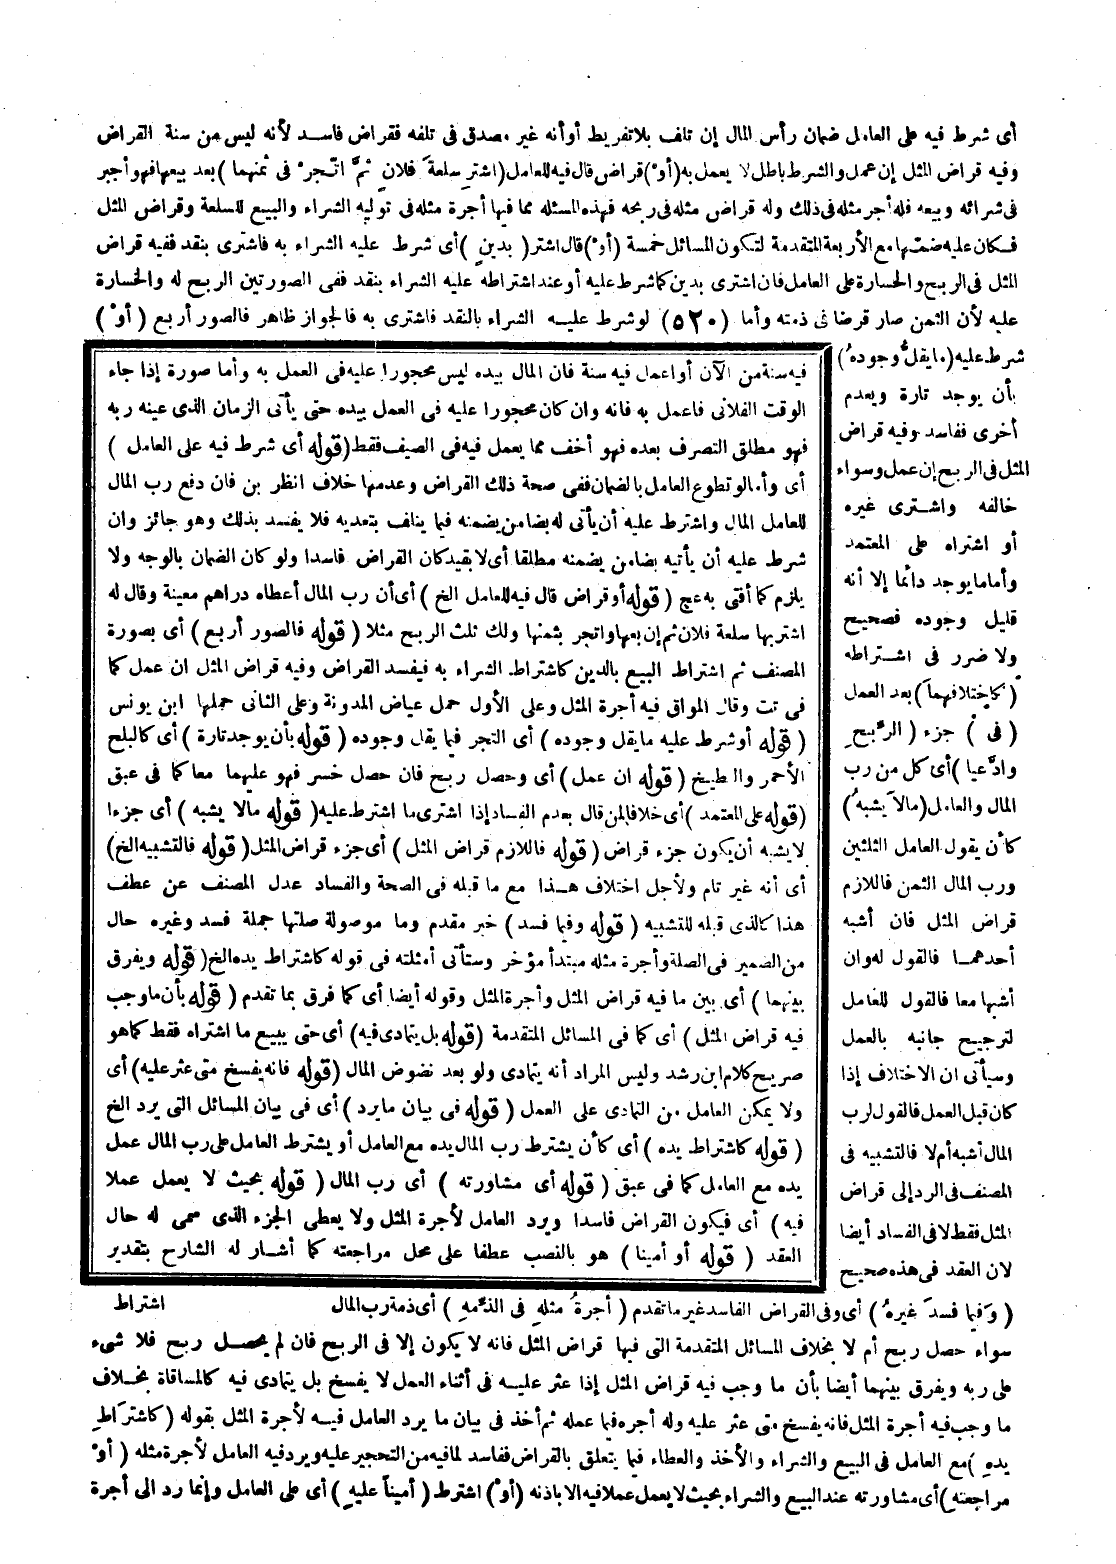 أى شرط فيه على العامل ضمان رأس المال إن تلف بلاتفريط أوأنه غير مصدق فى تلفه فقراض فاسد لأنه ليس من سنة القراض
وفيه قراض المثل إن عمل والشرط باطل لا يعمل به (أو) قراض قال فيه للعامل (اشتر سلعة فلان ثم اتجر فى ثمنها) بعد بيعها فهو أجير
فى شرائه وبيعه فله أجر مثله فى ذلك وله قراض مثله فى ربحه فهذه المسئله مما فيها أجرة مثله فى توليه الشراء والبيع للسلعة وقراض المثل
فكان عليه ضمتها مع الأربعة المتقدمة لتكون المسائل خمسة (أو) قال اشتر (بدين) أى شرط عليه الشراء به فاشترى بنقد ففيه قراض
المثل فى الربح والخسارة على العامل فان اشترى بدين كما شرط عليه أو عند اشتراطه عليه الشراء بنقد ففى الصورتين الربح له والخسارة
عليه لأن الثمن صار قرضا فى ذمته وأما (٥٢٠) لو شرط عليه الشراء بالنقد فاشترى به فالجواز ظاهر فالصور أربع (أو)
شرط عليه (ما يقل وجوده)
بأن يوجد تارة ويعدم
أخرى ففاسد وفيه قراض
المثل فى الربح إن عمل وسواء
خالفه واشترى غيره
أو اشتراه على المعتمد
وأما ما يوجد دائما إلا أنه
قليل وجوده فصحيح
ولا ضرر فى اشتراطه
(كاختلافهما) بعد العمل
(فى) جزء (الربح
وادعيا) أى كل من رب
المال والعامل (مالا يشبه)
كأن يقول العامل الثلثين
ورب المال الثمن فاللازم
قراض المثل فان أشبه
أحدهما فالقول له وان
أشبها معا فالقول للعامل
لترجيح جانبه بالعمل
وسيأتى ان الاختلاف إذا
كان قبل العمل فالقول لرب
المال أشبه أم لا فالتشبيه فى
المصنف فى الرد إلى قراض
المثل فقط لا فى الفساد أيضا
لان العقد فى هذه صحيح
(وفيما فسد غيره) أى وفى القراض الفاسد غير ما تقدم (أجرة مثله فى الذمه) أى ذمة رب المال
سواء حصل ربح أم لا بخلاف المسائل المتقدمة التى فيها قراض المثل فانه لا يكون إلا فى الربح فان لم يحصل ربح فلا شىء
على ربه ويفرق بينهما أيضا بأن ما وجب فيه قراض المثل إذا عثر عليه فى أثناء العمل لا يفسخ بل يتمادى فيه كالمساقاة بخلاف
ما وجب فيه أجرة المثل فانه يفسخ متى عثر عليه وله أجره فيما عمله ثم أخذ فى بيان ما يرد العامل فيه لأجرة المثل بقوله (كاشتراط
يده) مع العامل فى البيع والشراء والأخذ والعطاء فيما يتعلق بالقراض ففاسد لما فيه من التحجير عليه ويرد فيه العامل لأجرة مثله (أو
مراجعته) أى مشاورته عند البيع والشراء بحيث لا يعمل عملا فيه الا باذنه (أو) اشترط (أمينا عليه) أى على العامل وإنما رد الى أجرة
فيه سنة من الآن أو اعمل فيه سنة فان المال بيده ليس محجورا عليه فى العمل به وأما صورة إذا جاء
الوقت الفلانى فاعمل به فانه وان كان محجورا عليه فى العمل بيده حتى يأتى الزمان الذى عينه ربه
فهو مطلق التصرف بعده فهو أخف مما يعمل فيه فى الصيف فقط (قوله أى شرط فيه على العامل)
أى وأما لو تطوع العامل بالضمان ففى صحة ذلك القراض وعدمها خلاف انظر بن فان دفع رب المال
للعامل المال واشترط عليه أن يأتى له بضامن يضمنه فيما يتلف بتعديه فلا يفسد بذلك وهو جائز وان
شرط عليه أن يأتيه بضامن يضمنه مطلقا أى لا بقيد كان القراض فاسدا ولو كان الضمان بالوجه ولا
يلزم كما أفتى به عج (قوله أو قراض قال فيه للعامل الخ) أى أن رب المال أعطاه دراهم معينة وقال له
اشتر بها سلعة فلان ثم إن بعها واتجر بثمنها ولك ثلث الربح مثلا (قوله فالصور أربع) أى بصورة
المصنف ثم اشتراط البيع بالدين كاشتراط الشراء به فيفسد القراض وفيه قراض المثل ان عمل كما
فى تت وقال المواق فيه أجرة المثل وعلى الأول حمل عياض المدونة وعلى الثانى حملها ابن يونس
(قوله أو شرط عليه ما يقل وجوده) أى التجر فيما يقل وجوده (قوله بأن يوجد تارة) أى كالبلح
الأحمر والطيخ (قوله ان عمل) أى وحصل ربح فان حصل خسر فهو عليهما معا كما فى عبق
(قوله على المعتمد) أى خلافا لمن قال بعدم الفساد إذا اشترى ما اشترط عليه (قوله مالا يشبه) أى جزءا
لا يشبه أن يكون جزء قراض (قوله فاللازم قراض المثل) أى جزء قراض المثل (قوله فالتشبيه الخ)
أى أنه غير تام ولأجل اختلاف هذا مع ما قبله فى الصحة والفساد عدل المصنف عن عطف
هذا كالذى قبله للتشبيه (قوله وفيما فسد) خبر مقدم وما موصولة صلتها جملة فسد وغيره حال
من الضمير فى الصلة وأجرة مثله مبتدأ مؤخر وستأتى أمثلته فى قوله كاشتراط يده الخ (قوله ويفرق
بينهما) أى بين ما فيه قراض المثل وأجرة المثل وقوله أيضا أى كما فرق بما تقدم (قوله بأن ما وجب
فيه قراض المثل) أى كما فى المسائل المتقدمة (قوله بل يتمادى فيه) أى حتى يبيع ما اشتراه فقط كما هو
صريح كلام ابن رشد وليس المراد أنه يتمادى ولو بعد نضوض المال (قوله فانه يفسخ متى عثر عليه) أى
ولا يمكن العامل من التمادى على العمل (قوله فى بيان ما يرد) أى فى بيان المسائل التى يرد الخ
(قوله كاشتراط يده) أى كأن يشترط رب المال يده مع العامل أو يشترط العامل على رب المال عمل
يده مع العامل كما فى عبق (قوله أى مشاورته) أى رب المال (قوله بحيث لا يعمل عملا
فيه) أى فيكون القراض فاسدا ويرد العامل لأجرة المثل ولا يعطى الجزء الذى سمى له حال
العقد (قوله أو أمينا) هو بالنصب عطفا على محل مراجعته كما أشار له الشارح بتقدير
اشتراط